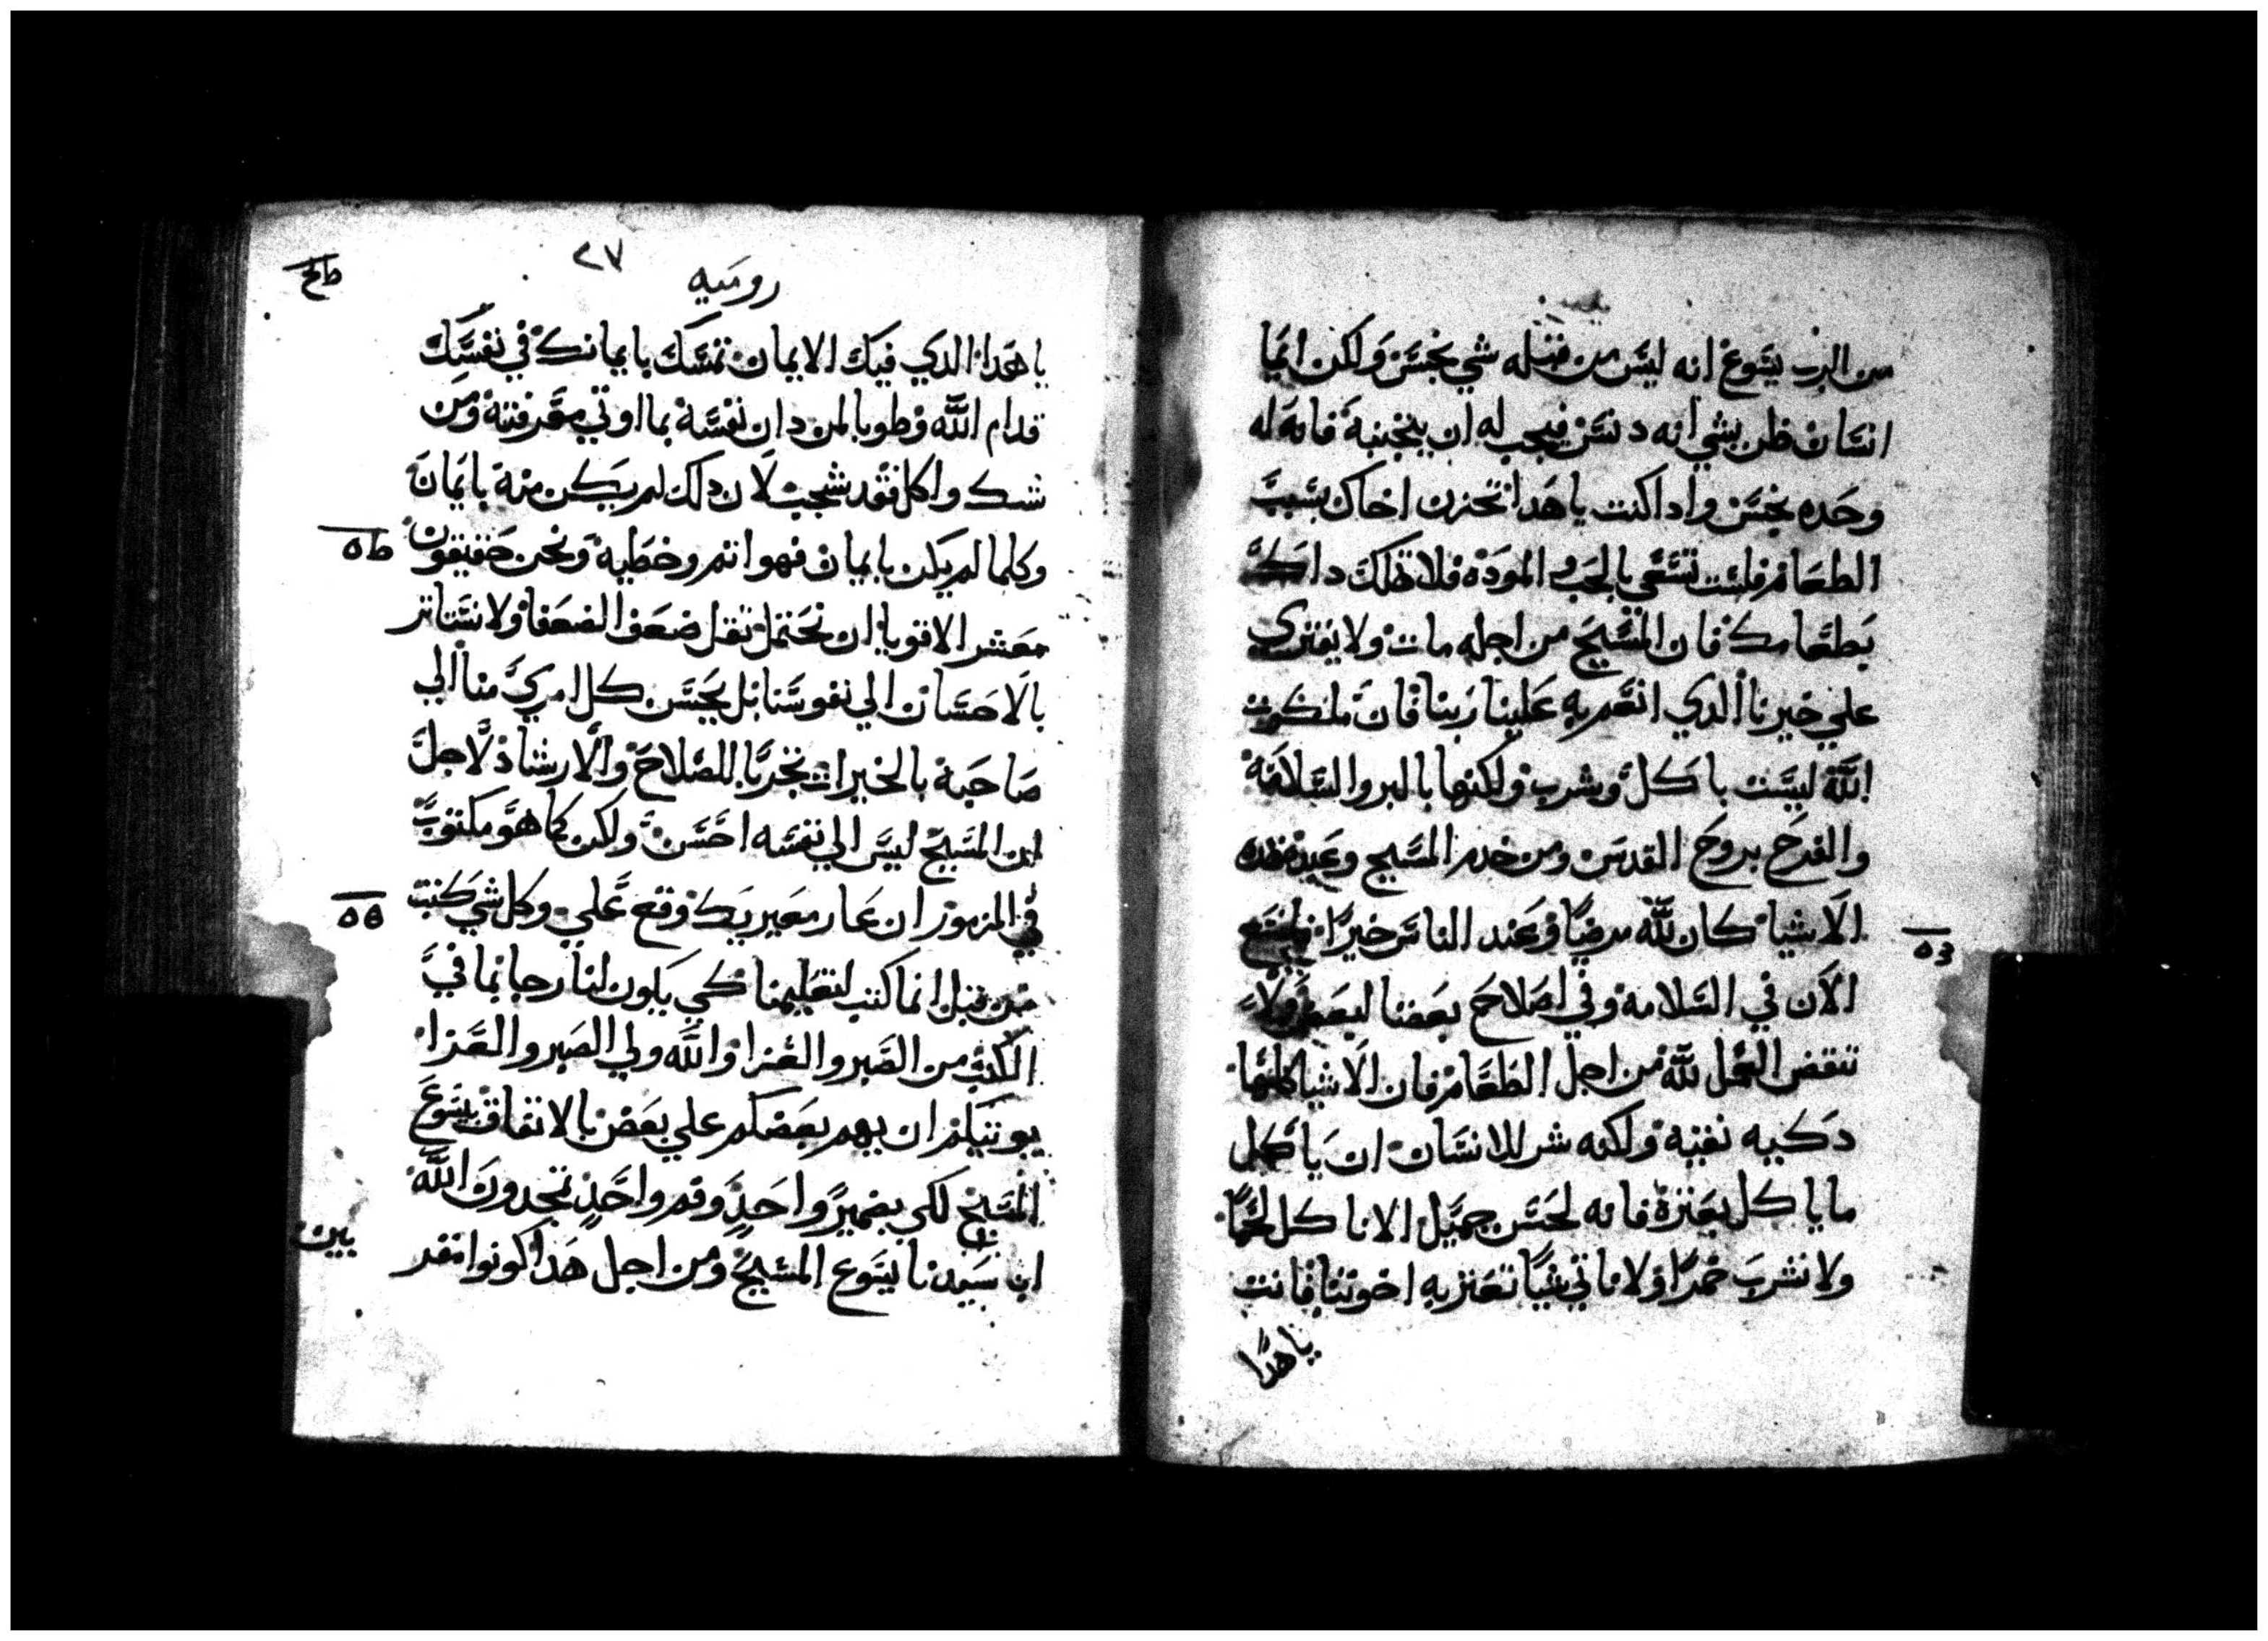 من الرب يسوع انه ليس من قبله شي نجس ولكن ايما
انسان ظن بشي انه دنس فيجب له ان يتجنبه فانه له
وحده نجس وادا كنت ياهدا تحزن اخاك بسبب
الطعام فلست تسعي بالحب و المودة فلا تهلك داك
بطعامك فان المسيح من اجله مات ولا يفتري
علي خيرنا الدي انعم به علينا ربنا فان ملكوت
الله ليست باكل وشرب ولكنها بالبر والسلامة
والفرح بروح القدس ومن خدم المسيح وعبد بهده
الاشيا كان لله مرضيا وعند الناس خيرا
الان في السلامه وفي اصلاح بعضنا لبعض ولا
تنقض العمل لله من اجل الطعام فان الاشيا كلها
دكيه نقيه ولكنه شر للانسان ان ياكل
ما ياكل بعترة فانه لحسن جميل الا ناكل لحما
ولا نشرب خمرا ولا ناتي شيا تعتر به اخوتنا فانت
ياهدا
٢٧
روميه
ياهدا الدي فيك الايمان تمسك بايمانك في نفسك
قدام الله وطوبا لمن دان نفسه بما اوتي معرفته ومن
شك واكل فقد شجب لان دلك لم يكن منه بايمان
وكلما لم يكن بايمان فهو اتم وخطيه ونحن حقيقون
معشر الاقويا ان نحتمل تقل ضعف الضعفا ولا نستاتر
بالاحسان الي نفوسنا بل يحسن كل امري منا الي
صاحبه بالخيرات تجربا للصلاح والارشاد لاجل
ان المسيح ليس الي نفسه احسن ولكن كما هو مكتوب
في المزمور ان عار معيريك وقع علي وكل شي كتب
من قبل انما كتب لتعليمنا كي يكون لنا رجا بما في
الكتب من الصبر والعزا والله ولي الصبر والعزا
يوتيكم ان يهم بعضكم علي بعض بالاتفاق بيسوع
المسيح لكي بضمير واحد وفم واحد تمجدون الله
اب سيدنا يسوع المسيح ومن اجل هدا كونوا